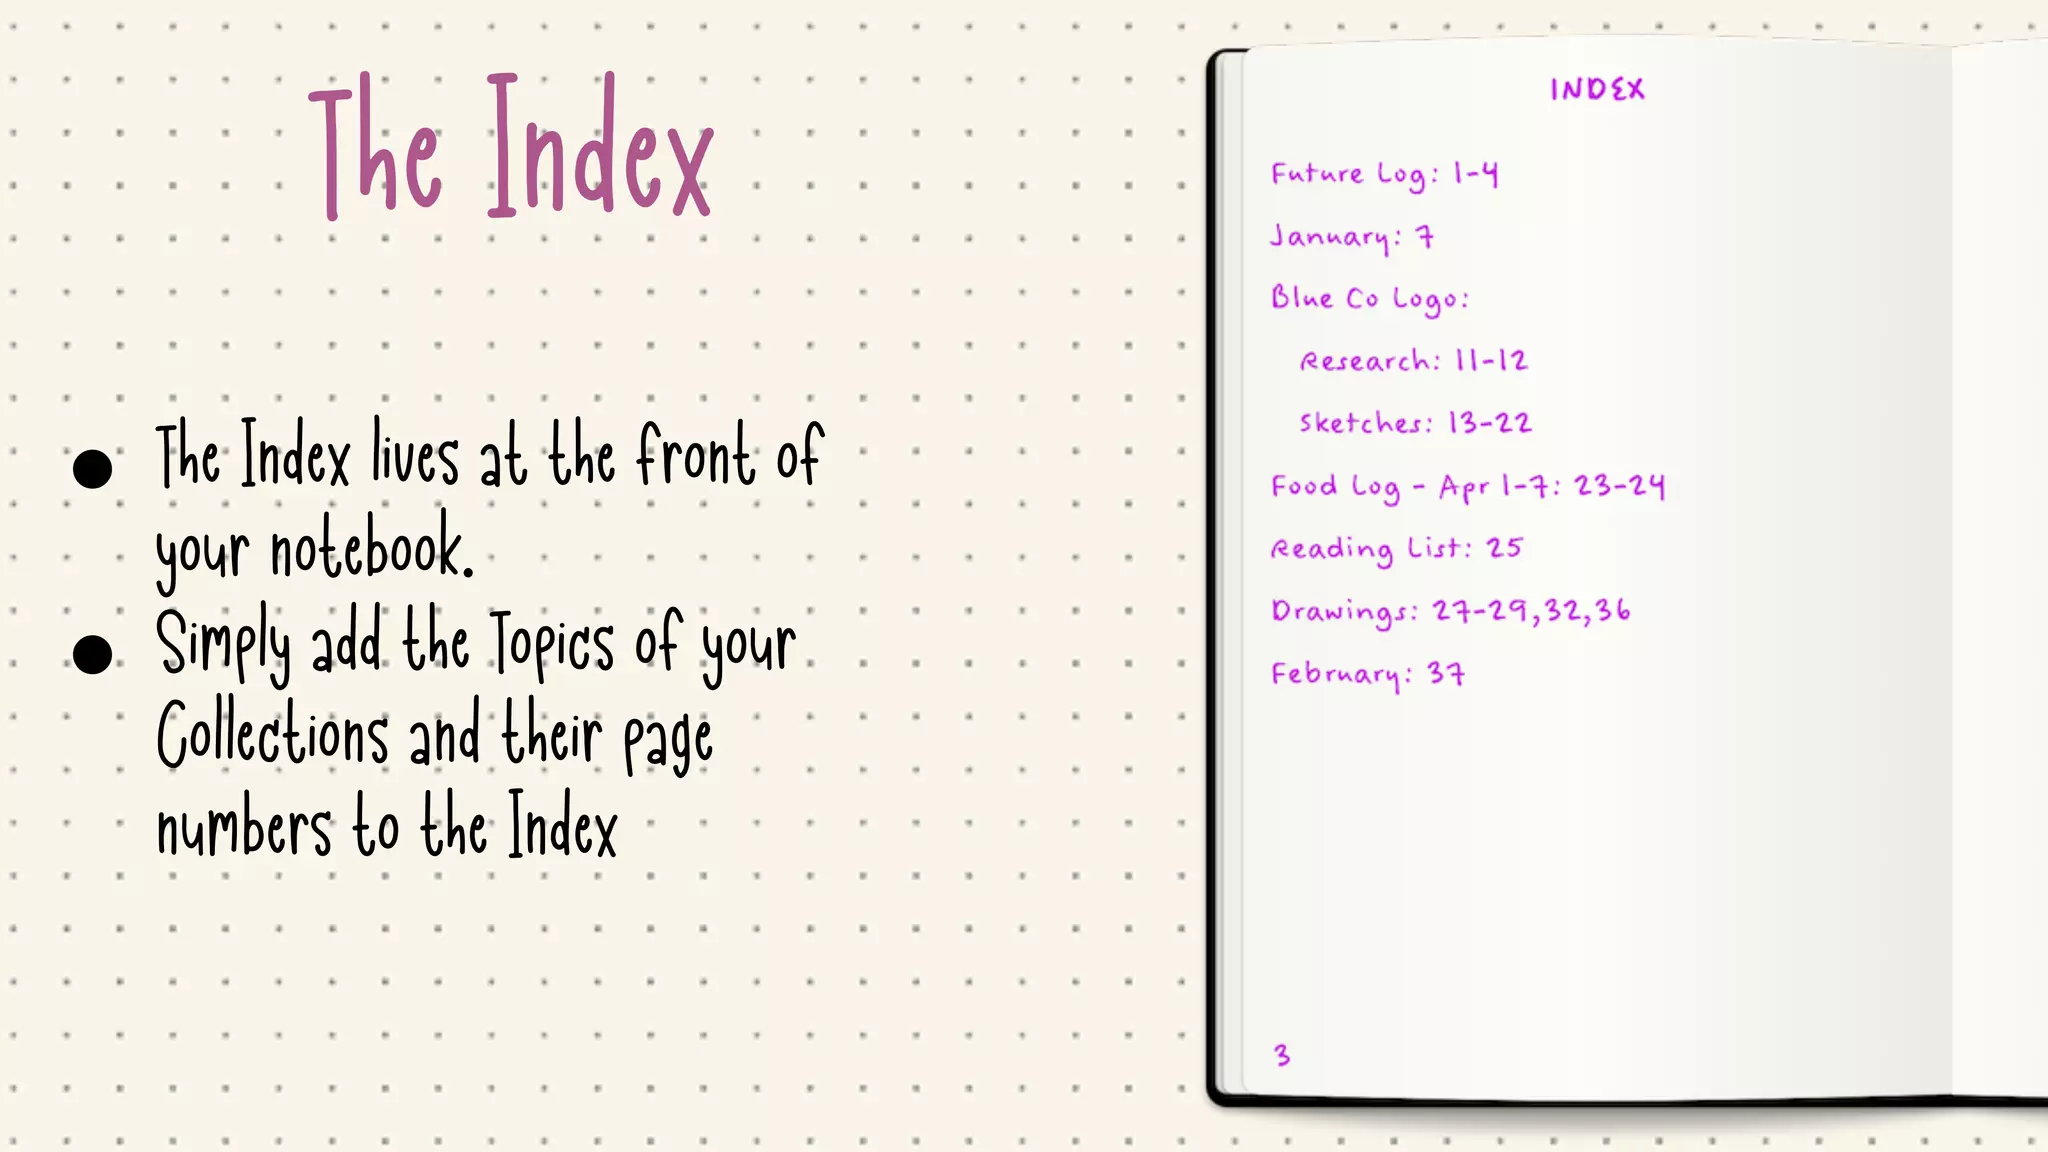 The Index
The Index lives at the front of
your notebook.
Simply add the Topics of your
Collections and their page
numbers to the Index
INDEX
Future Log: 1-4
January: 7
Blue Co Logo:
Research: 11-12
Sketches: 13-22
Food Log - Apr 1-7: 23-24
Reading List: 25
Drawings: 27-29,32,36
February: 37
3